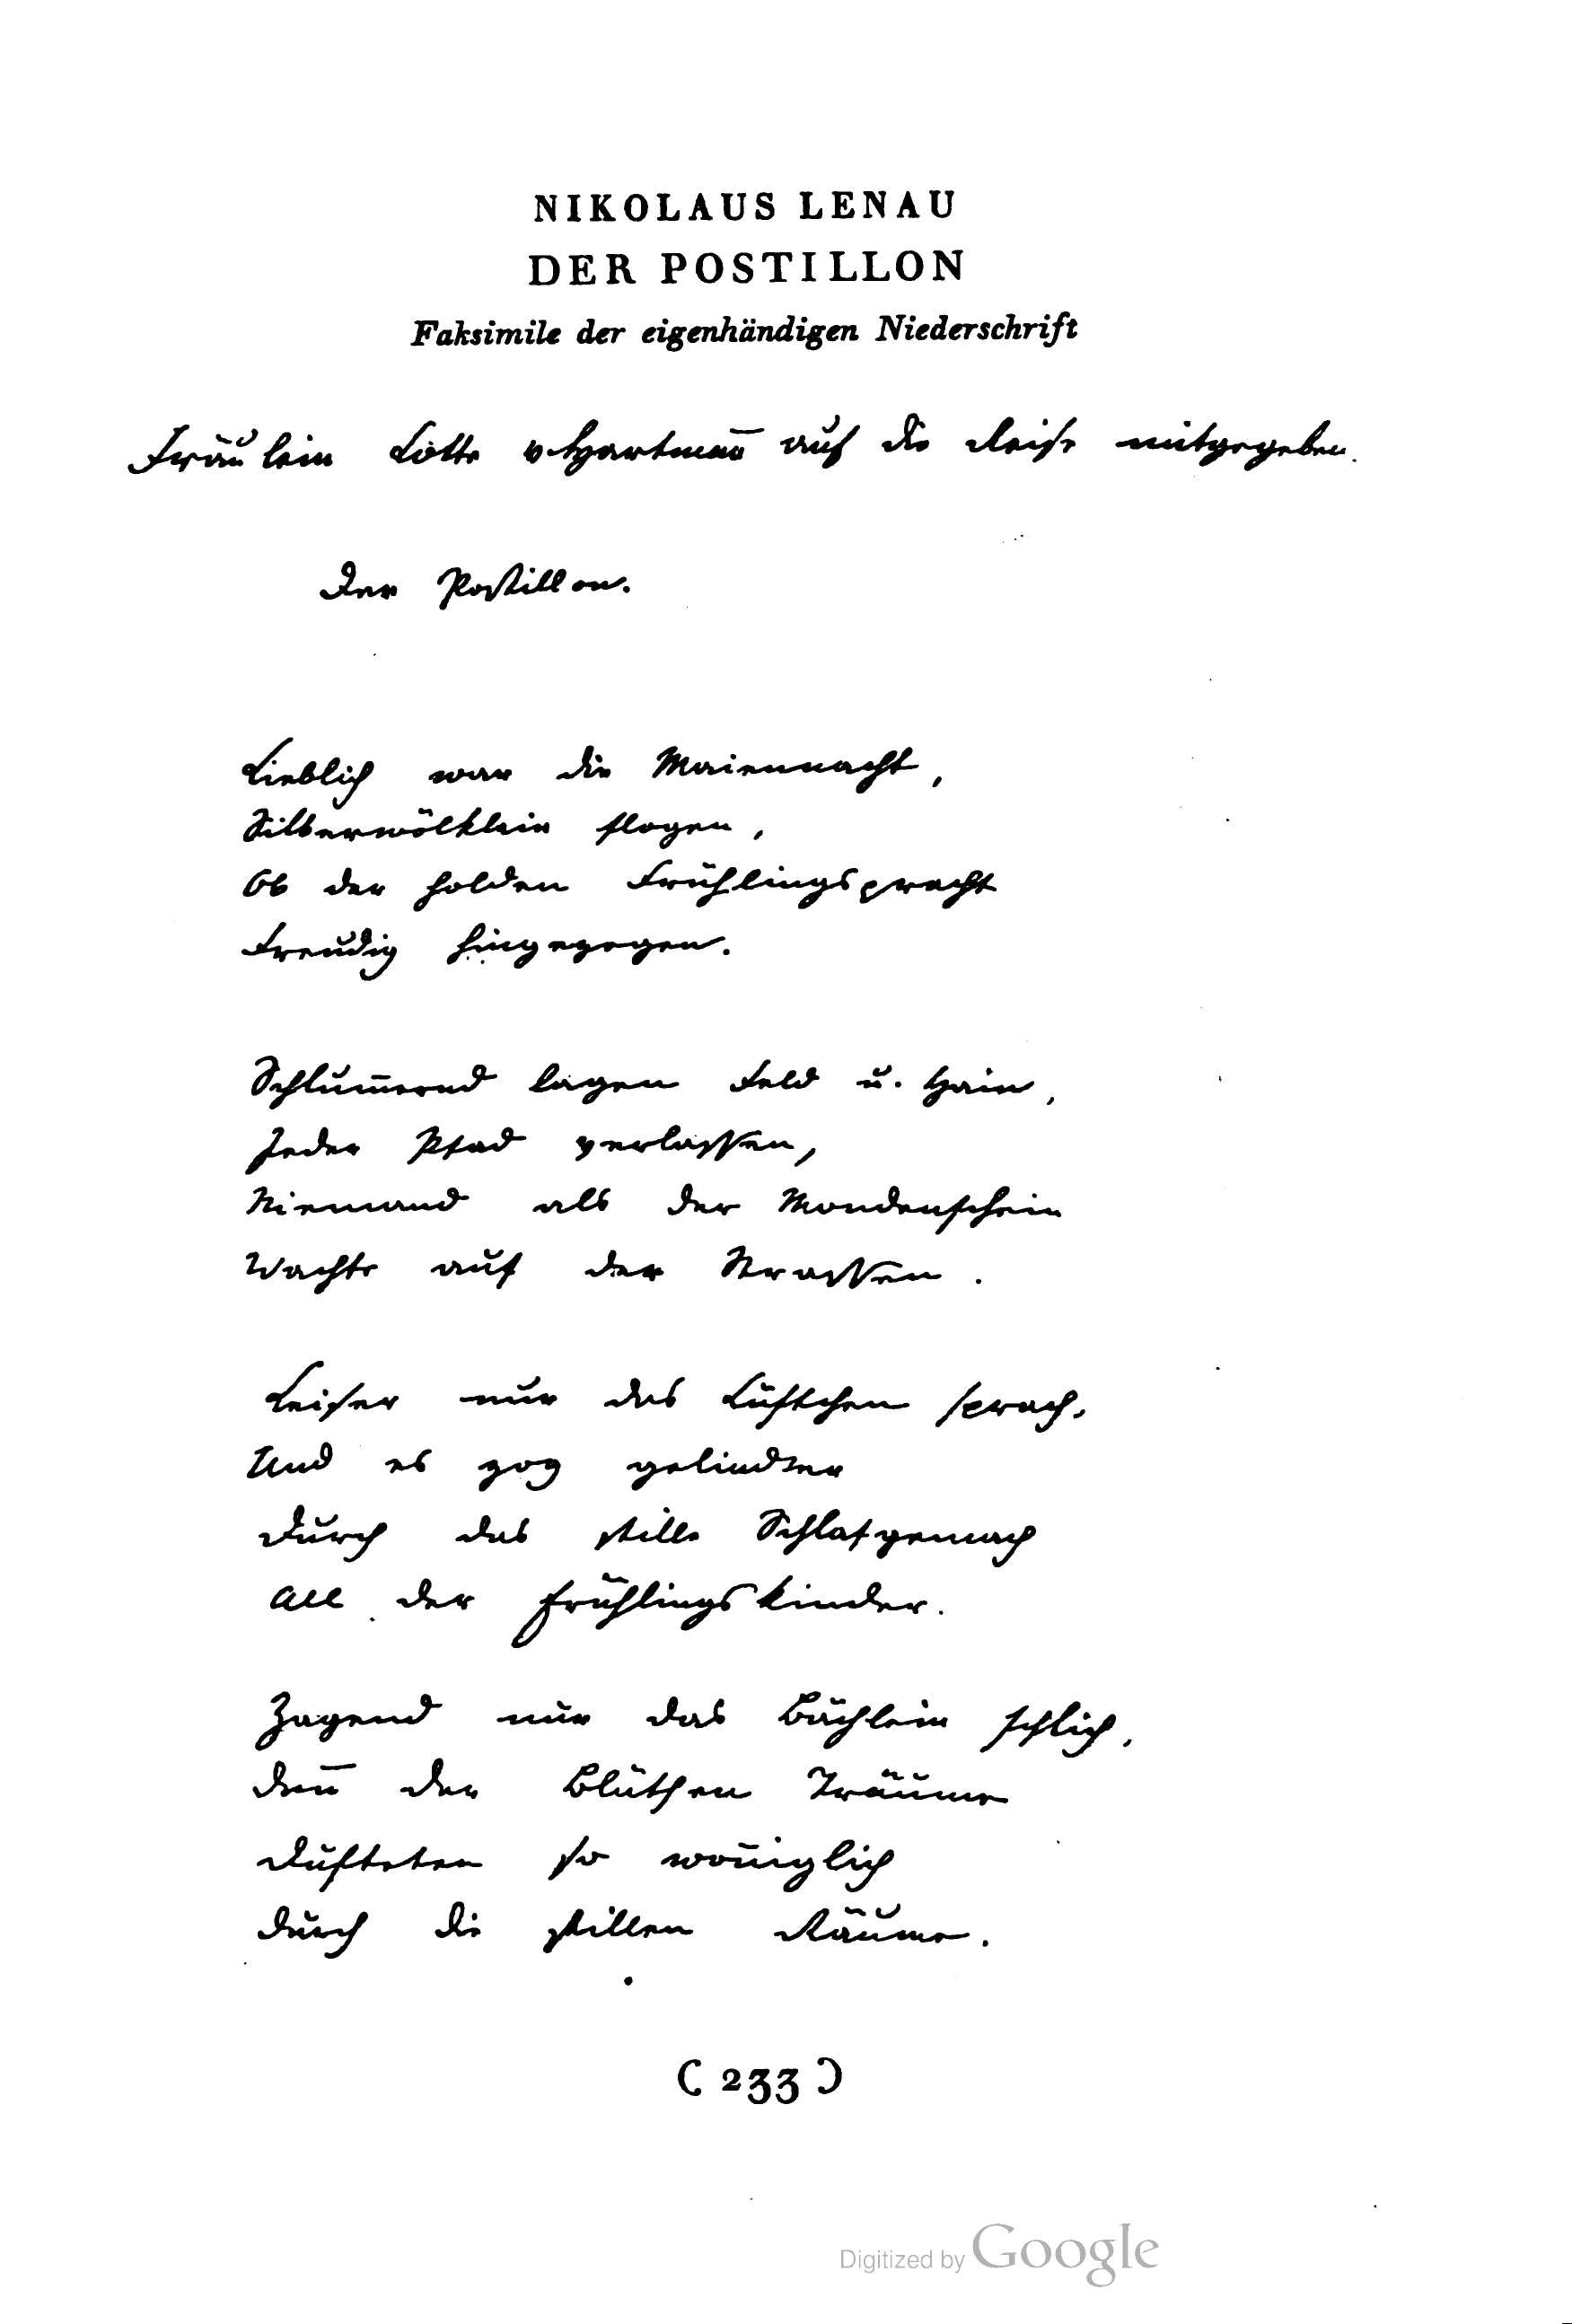 NIKOLAUS LENAU
DER POSTILLON
Faksimile der eigenhändigen Niederschrift
Fräulein Lotte v Hartmañ auf die Reise mitgegeben.
Der Postillon.
Lieblich war die Maiennacht,
Silberwölklein flogen,
Ob der holden Frühlingspracht
Freudig hingezogen.
Schlum̅ernd lagen Feld u. Hain,
Jeder Pfad verlassen,
Niemand als der Mondenschein
Wachte auf der Strassen.
Leiser nur das Lüftchen sprach,
Und es zog gelinder
Durch das stille Schlafgemach
All der Frühlingskinder.
Zagend nur das Bächlein schlich,
Den̅ der Blüthen Träume
Dufteten so won̅iglich
Durch die stillen Räume.
( 233 )
Digitized by Google